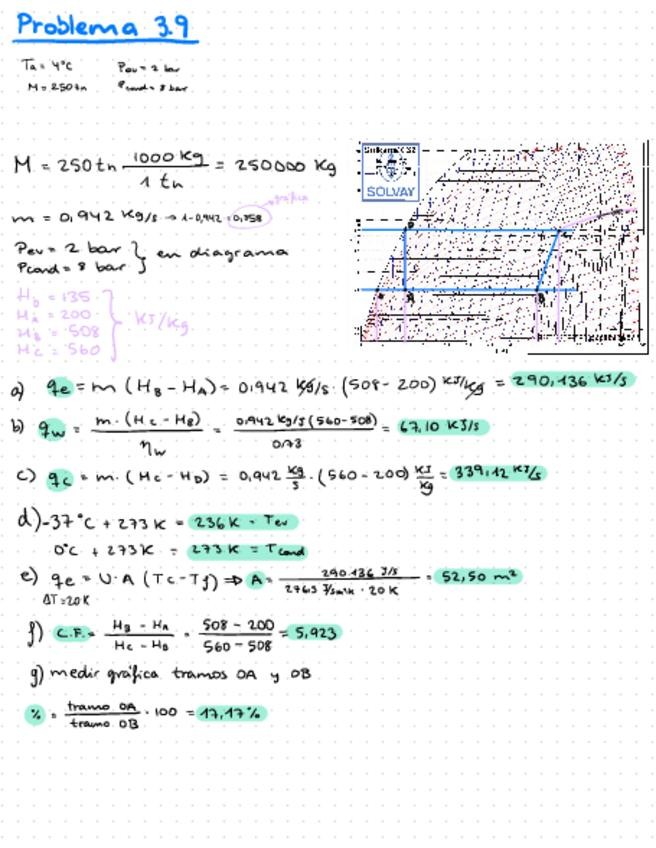 Problema 3.9
Ta = 4°C Pev = 2 bar
M = 250 tn Pcond = 8 bar
M = 250 tn 1000 Kg / 1 tn = 250000 Kg
gráfica
m = 0,942 Kg/s → 1-0,942 = 0,358
Pev = 2 bar
Pcond = 8 bar } en diagrama
HD = 135
HA = 200
HB = 508
HC = 560 } KJ/Kg
SOLVAY
D
A B
a) qe = m (HB - HA) = 0,942 Kg/s · (508 - 200) KJ/Kg = 290,136 KJ/s
b) qw = m · (Hc - HB) / ηw = 0,942 Kg/s (560-508) / 0,73 = 67,10 KJ/s
c) qc = m · (Hc - HD) = 0,942 Kg/s · (560 - 200) KJ/Kg = 339,12 KJ/s
d) -37°C + 273 K = 236 K = Tev
0°C + 273 K = 273 K = Tcond
e) qe = U·A (Tc - Tf) ⇒ A = 290.136 J/s / · 20 K = 52,50 m²
ΔT = 20 K
f) C.F. = HB - HA / HC - HB = 508 - 200 / 560 - 508 = 5,923
g) medir gráfica tramos OA y OB
% = tramo OA / tramo OB · 100 = 17,17%